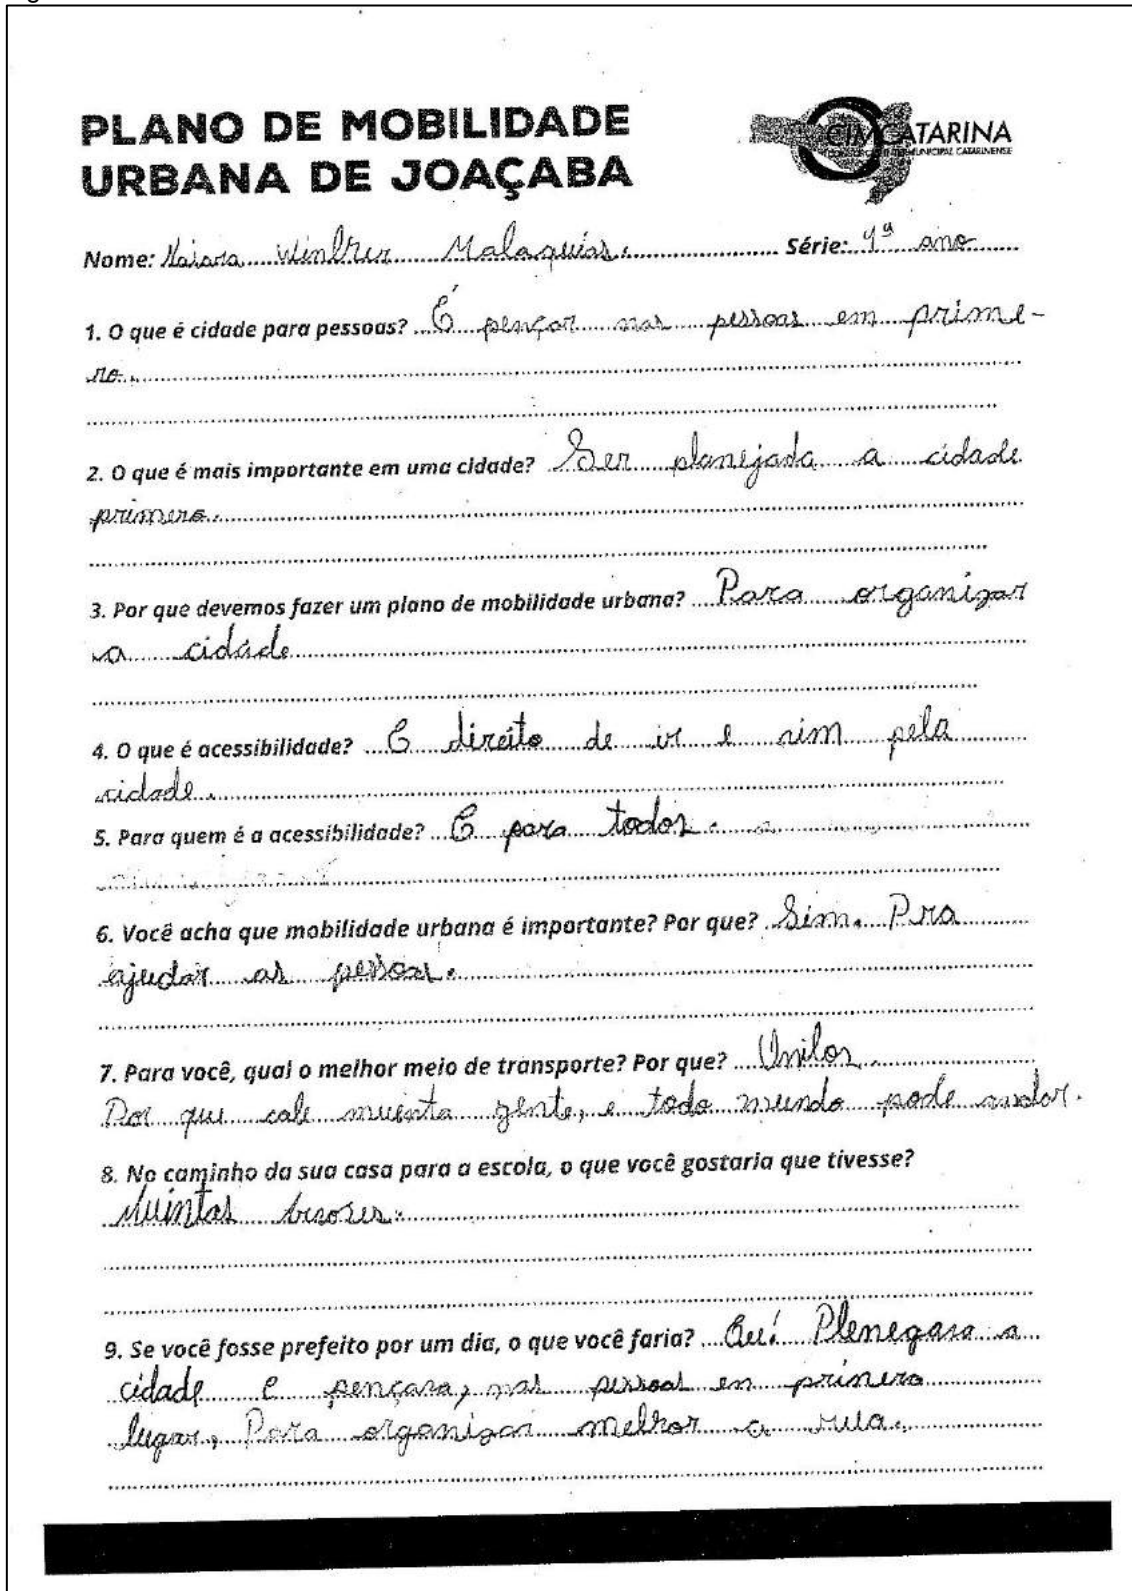 PLANO DE MOBILIDADE
URBANA DE JOAÇABA
CIMCATARINA
CONSÓRCIO INTERMUNICIPAL CATARINENSE
Nome: Naiara Winlter Malaquias. Série: 4ª ano
1. O que é cidade para pessoas? É pençar nas pessoas em prime-
ro.
2. O que é mais importante em uma cidade? Ser planejada a cidade
primero.
3. Por que devemos fazer um plano de mobilidade urbana? Para organizar
a cidade
4. O que é acessibilidade? É direito de ir e vim pela
cidade.
5. Para quem é a acessibilidade? É para todos.
6. Você acha que mobilidade urbana é importante? Por que? Sim. Pra
ajudar as pessoas.
7. Para você, qual o melhor meio de transporte? Por que?
Por que cabe muinta gente, e todo mundo pode andar.
8. No caminho da sua casa para a escola, o que você gostaria que tivesse?
Muintas
9. Se você fosse prefeito por um dia, o que você faria? Eu! Plenegara a
cidade e pençara, nas pessoas en prinero
lugar, Para organizar melhor a rua.